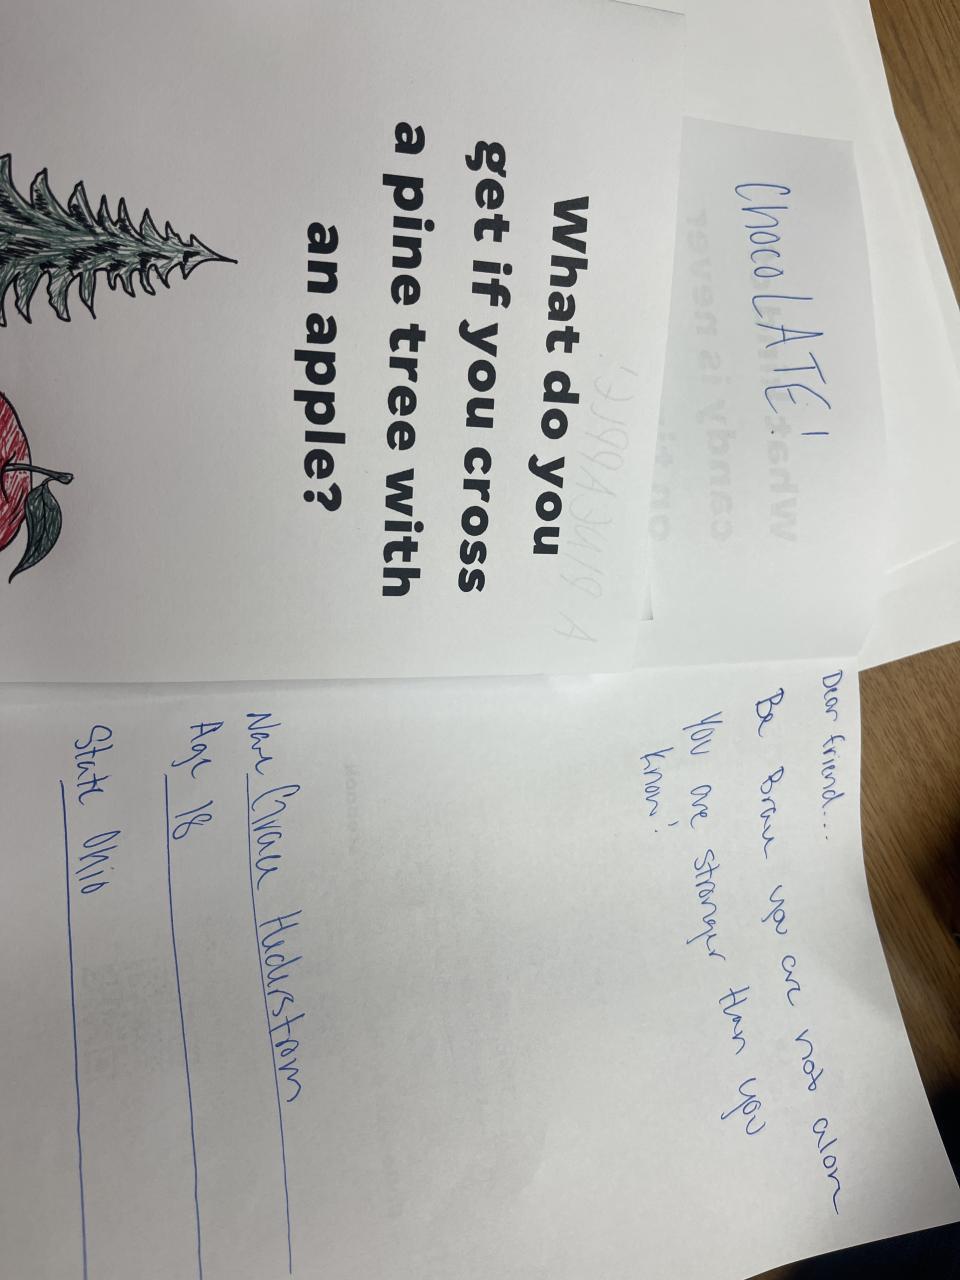 ChocoLATE!
What do you
get if you cross
a pine tree with
an apple?
A PINEAPPLE!
Dear friend...
Be Brave you are not alone
You are stronger than you
know!
Name Grace Hederstrom
Age 18
State Ohio